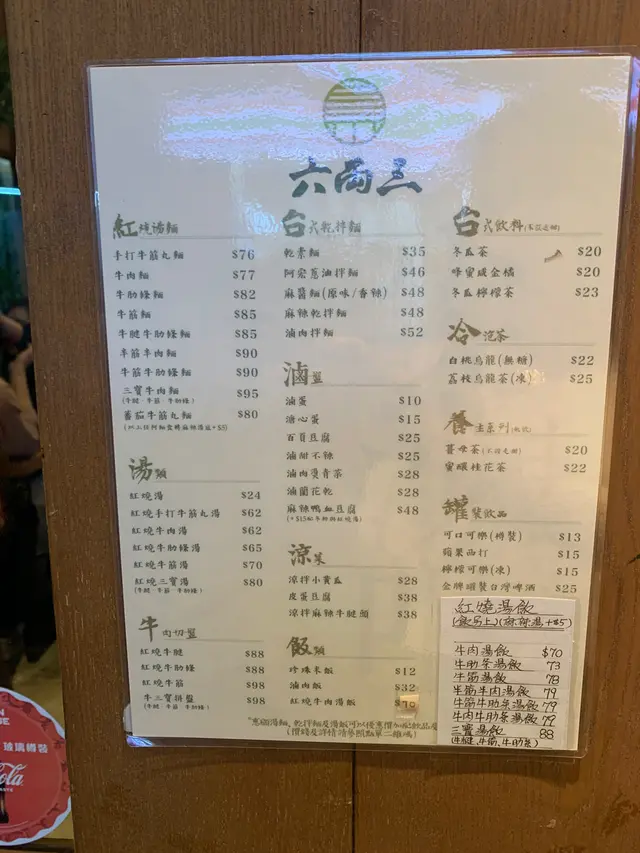 六兩三
紅燒湯麵
手打牛筋丸麵 $76
牛肉麵 $77
牛肋條麵 $82
牛筋麵 $85
牛腱牛肋條麵 $85
半筋半肉麵 $90
牛筋牛肋條麵 $90
三寶牛肉麵 $95
(牛腱、牛筋、牛肋條)
蕃茄牛筋丸麵 $80
湯類
紅燒湯 $24
紅燒手打牛筋丸湯 $62
紅燒牛肉湯 $62
紅燒牛肋條湯 $65
紅燒牛筋湯 $70
紅燒三寶湯 $80
(牛腱、牛筋、牛肋條)
牛肉切盤
紅燒牛腱 $88
紅燒牛肋條 $88
紅燒牛筋 $98
牛三寶拼盤 $98
(牛腱、牛筋、牛肋條)
台式乾拌麵
乾素麵 $35
阿宏蔥油拌麵 $46
麻醬麵(原味/香辣) $48
麻辣乾拌麵 $48
滷肉拌麵 $52
滷盤
滷蛋 $10
溏心蛋 $15
百頁豆腐 $25
滷甜不辣 $25
滷肉燙青菜 $28
滷蘭花乾 $28
麻辣鴨血豆腐 $48
涼菜
涼拌小黃瓜 $28
皮蛋豆腐 $38
涼拌麻辣牛腱 $38
飯類
珍珠米飯 $12
滷肉飯 $32
紅燒牛肉湯飯
台式飲料(不設走甜)
冬瓜茶 $20
蜂蜜咸金橘 $20
冬瓜檸檬茶 $23
冷泡茶
白桃烏龍(無糖) $22
荔枝烏龍茶(凍) $25
養生系列
薑母茶(不設走甜) $20
蜜釀桂花茶 $22
罐裝飲品
可口可樂(樽裝) $13
蘋果西打 $15
檸檬可樂(凍) $15
金牌罐裝台灣啤酒 $25
紅燒湯飯
(飯另上)(麻辣湯+$5)
牛肉湯飯 $70
牛肋条湯飯 73
牛筋湯飯 78
半筋牛肉湯飯 79
牛筋牛肋条湯飯 79
牛肉牛肋条湯飯 79
三寶湯飯 88
(牛腱、牛筋、牛肋条)
玻璃樽裝